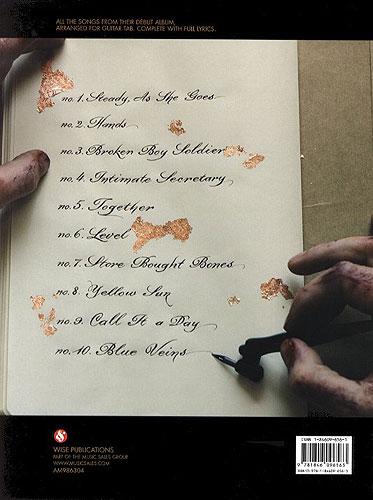 ALL THE SONGS FROM THEIR DÉBUT ALBUM,
ARRANGED FOR GUITAR TAB. COMPLETE WITH FULL LYRICS.
no. 1. Steady, As She Goes
no. 2. Hands
no. 3. Broken Boy Soldier
no. 4. Intimate Secretary
no. 5. Together
no. 6. Level
no. 7. Store Bought Bones
no. 8. Yellow Sun
no. 9. Call It a Day
no. 10. Blue Veins
WISE PUBLICATIONS
PART OF THE MUSIC SALES GROUP
WWW.MUSICSALES.COM
AM986304
ISBN 1-84609-656-1
9 781846 096563